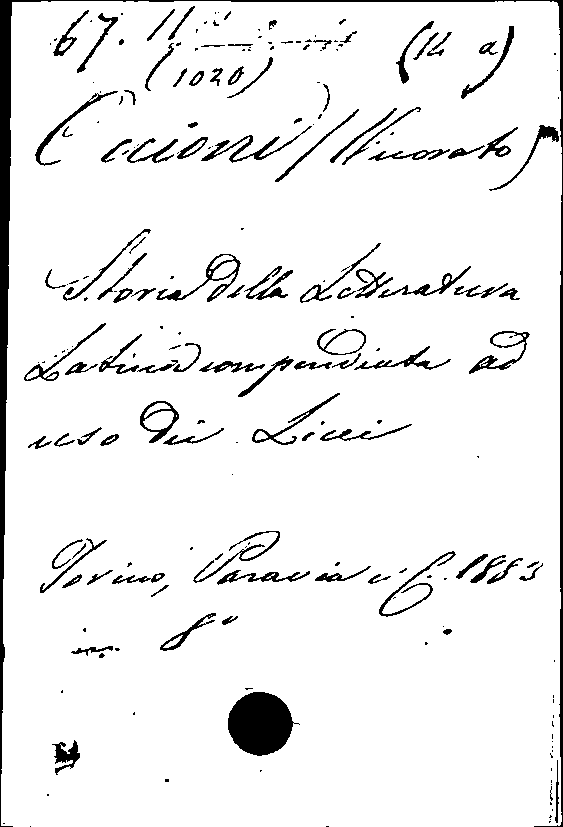 67. 11
(1020) (14 a)
Occioni (Onorato)
Storia della Letteratura
Latina compendiata ad
uso dei Licei
Torino, Paravia e C. 1883
in 8°